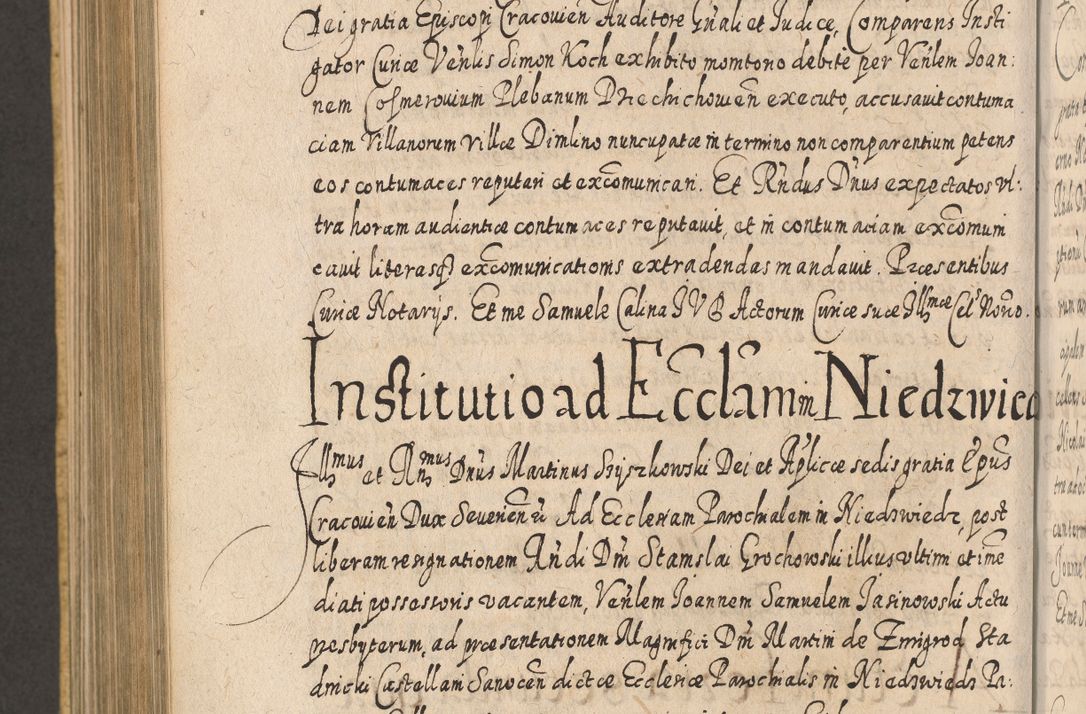 Dei gratia Episcopi Cracovień Auditore Gńali et Judice, Comparens Insti
gator Curiæ Veńlis Simon Koch exhibito momtono debite per Veńlem Joan:
nem Cosmerovium Plebanum Dziechichovień executo, accusavit contuma
ciam Villanorum Villæ Dimlino nuncupatæ in termino non comparentium petens
eos contumaces reputari et excomunicari. Et Rńdus Dńus expectatos Vl:
tra horam audientiæ contumaces reputavit, et in contumaciam excomuni
cavit literasq excomunicationis extradendas mandavit. Præsentibus
Curiæ Notarijs. Et me Samuele Calina JVD Actorum Curiæ suæ Jllmæ Cels Nono.
Institutio ad Ecclam in Niedzwica
Jllmus et Rńmus Dńus Martinus Szyszkowski Dei et Aplicæ sedis gratia Epus
Cracovień Dux Severień Ad Ecclesiam Parochialem in Niedzwiedz, post
liberam resignationem Rńdi Dńi Stanislai Grochowski illius vltimi et ime
diati possessoris vacantem, Veńlem Joannem Samuelem Jasinowski Actu
presbyterum, ad præsentationem Magnifici Dńi Martini de Zmigrod Sta
dnicki Castellani Sanocen dictæ Ecclesiæ Parochialis in Niedzwiedz Pa: